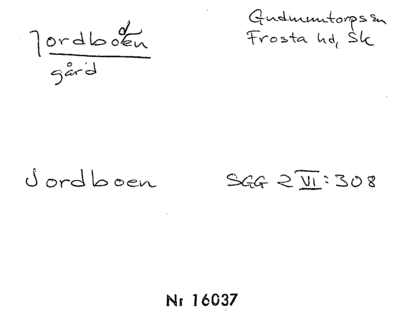 Jordboen
gård
Gudmuntorps sn
Frosta hd, Sk
Jordboen
SGG 2 VI: 308
Nr 16037